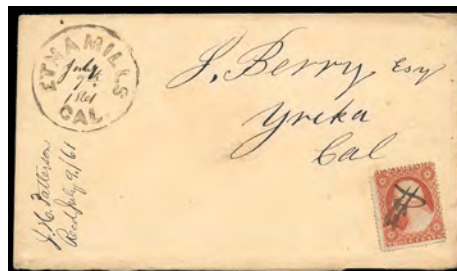 ETNA MILLS
July
9th
1861
CAL.
J. Berry Esq
Yreka
Cal
J. H. Patterson
Recd July 9, /61